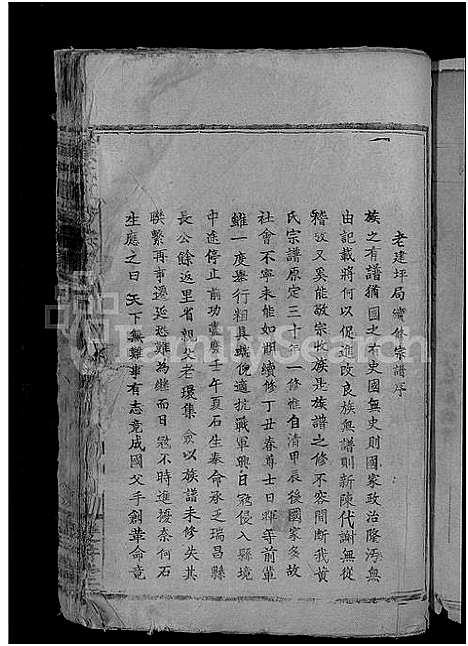 老建坪局續修宗譜序
族之有譜猶國之有史國無史則國家政治隆汚無
由記載將何以促進改良族無譜則新陳代謝無從
稽攷又奚能敬宗收族是族譜之修不容間斷我黃
氏宗譜原定三十年一修惟自清甲辰後國家多故
社會不寧未能如期續修丁丑春尊士日暉等前輩
雖一度舉行粗具規倪適抗戰軍興日寇侵入縣境
中途停止前功盡廢壬午夏石生奉命承乏瑞昌縣
長公餘返里省親父老環集僉以族譜未修失其
聯繫再事遷延恐難為繼而日寇不時進擾奈何石
生應之曰天下無難事有志竟成國父手創革命竟
FamilySearch